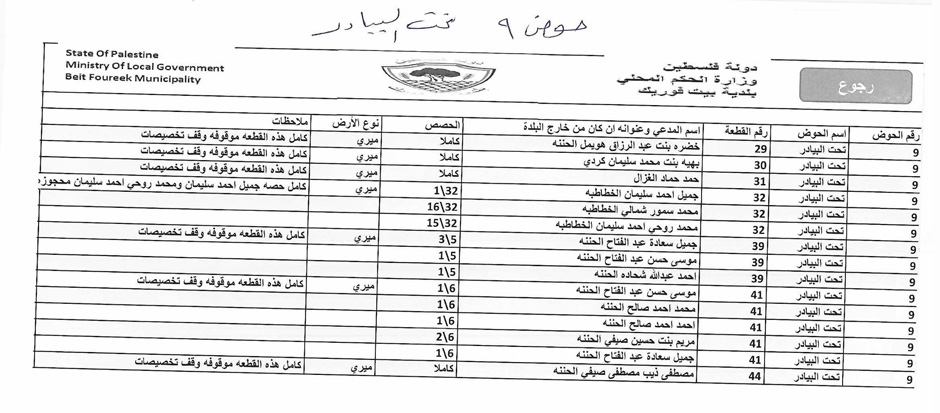 حوض ٩ تحت البيادر
State Of Palestine
Ministry Of Local Government
Beit Foureek Municipality
دولة فلسطين
وزارة الحكم المحلي
بلدية بيت فوريك
رجوع
رقم الحوض اسم الحوض رقم القطعة اسم المدعي وعنوانه ان كان من خارج البلدة الحصص نوع الأرض ملاحظات
9 تحت البيادر 29 خضره بنت عبد الرزاق هويمل الحننه كاملا ميري كامل هذه القطعه موقوفه وقف تخصيصات
9 تحت البيادر 30 بهيه بنت محمد سليمان كردي كاملا ميري كامل هذه القطعه موقوفه وقف تخصيصات
9 تحت البيادر 31 حمد حماد الغزال كاملا ميري كامل هذه القطعه موقوفه وقف تخصيصات
9 تحت البيادر 32 جميل احمد سليمان الخطاطبه 1\32 ميري كامل حصه جميل احمد سليمان ومحمد روحي احمد سليمان محجوزه
9 تحت البيادر 32 محمد سمور شمالي الخطاطبه 16\32
9 تحت البيادر 32 محمد روحي احمد سليمان الخطاطبه 15\32
9 تحت البيادر 39 جميل سعادة عبد الفتاح الحننه 3\5 ميري كامل هذه القطعه موقوفه وقف تخصيصات
9 تحت البيادر 39 موسى حسن عبد الفتاح الحننه 1\5
9 تحت البيادر 39 احمد عبدالله شحاده الحننه 1\5
9 تحت البيادر 41 موسى حسن عبد الفتاح الحننه 1\6 ميري كامل هذه القطعه موقوفه وقف تخصيصات
9 تحت البيادر 41 محمد احمد صالح الحننه 1\6
9 تحت البيادر 41 احمد احمد صالح الحننه 1\6
9 تحت البيادر 41 مريم بنت حسين صيفي الحننه 2\6
9 تحت البيادر 41 جميل سعادة عبد الفتاح الحننه 1\6
9 تحت البيادر 44 مصطفى ذيب مصطفى صيفي الحننه كاملا ميري كامل هذه القطعه موقوفه وقف تخصيصات